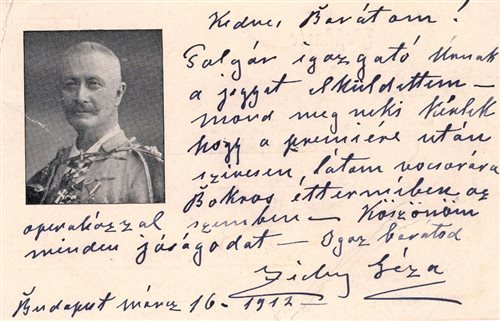 Kedves Barátom!
Polgár igazgató Úrnak
a jegyet elküldettem –
mond meg neki kérlek
hogy a premiere után
szivesen látom vacsorára
Bokros éttermében az
operaházzal szemben – Köszönöm
minden jóságodat – Igaz barátod
Zichy Géza
Budapest márcz 16. 1912 –